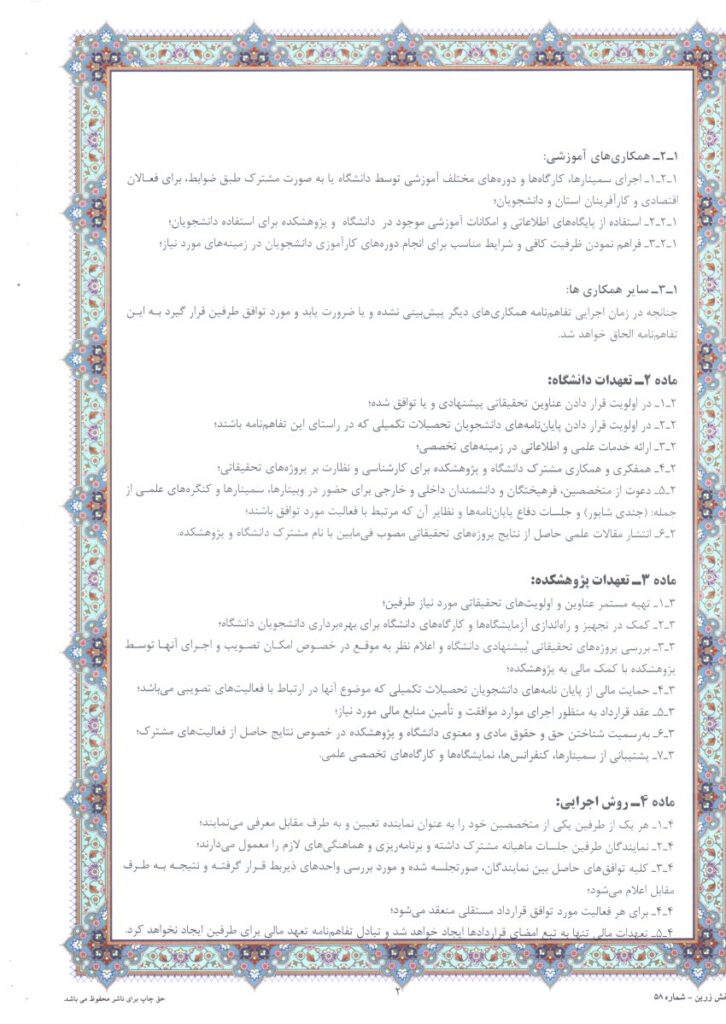 ۱ـ۲ـ همکاری‌های آموزشی:
۱ـ۲ـ۱ـ اجرای سمینارها، کارگاه‌ها و دوره‌های مختلف آموزشی توسط دانشگاه یا به صورت مشترک طبق ضوابط، برای فعـالان
اقتصادی و کارآفرینان استان و دانشجویان؛
۱ـ۲ـ۲ـ استفاده از پایگاه‌های اطلاعاتی و امکانات آموزشی موجود در دانشگاه و پژوهشکده برای استفاده دانشجویان؛
۱ـ۲ـ۳ـ فراهم نمودن ظرفیت کافی و شرایط مناسب برای انجام دوره‌های کارآموزی دانشجویان در زمینه‌های مورد نیاز؛
۱ـ۳ـ سایر همکاری ها:
چنانچه در زمان اجرایی تفاهم‌نامه همکاری‌های دیگر پیش‌بینی نشده و یا ضرورت یابد و مورد توافق طرفین قرار گیرد بـه ایـن
تفاهم‌نامه الحاق خواهد شد.
ماده ۲ـ تعهدات دانشگاه:
۲ـ۱ـ در اولویت قرار دادن عناوین تحقیقاتی پیشنهادی و یا توافق شده؛
۲ـ۲ـ در اولویت قرار دادن پایان‌نامه‌های دانشجویان تحصیلات تکمیلی که در راستای این تفاهم‌نامه باشند؛
۲ـ۳ـ ارائه خدمات علمی و اطلاعاتی در زمینه‌های تخصصی؛
۲ـ۴ـ همفکری و همکاری مشترک دانشگاه و پژوهشکده برای کارشناسی و نظارت بر پروژه‌های تحقیقاتی؛
۲ـ۵ـ دعوت از متخصصین، فرهیختگان و دانشمندان داخلی و خارجی برای حضور در وبینارها، سمینارها و کنگره‌های علمـی از
جمله: (جندی شاپور) و جلسات دفاع پایان‌نامه‌ها و نظایر آن که مرتبط با فعالیت مورد توافق باشند؛
۲ـ۶ـ انتشار مقالات علمی حاصل از نتایج پروژه‌های تحقیقاتی مصوب فی‌مابین با نام مشترک دانشگاه و پژوهشکده.
ماده ۳ـ تعهدات پژوهشکده:
۳ـ۱ـ تهیه مستمر عناوین و اولویت‌های تحقیقاتی مورد نیاز طرفین؛
۳ـ۲ـ کمک در تجهیز و راه‌اندازی آزمایشگاه‌ها و کارگاه‌های دانشگاه برای بهره‌برداری دانشجویان دانشگاه؛
۳ـ۳ـ بررسی پروژه‌های تحقیقاتی پیشنهادی دانشگاه و اعلام نظر به موقع در خصوص امکـان تصویـب و اجـرای آنهـا توسـط
پژوهشکده با کمک مالی به پژوهشکده؛
۳ـ۴ـ حمایت مالی از پایان نامه‌های دانشجویان تحصیلات تکمیلی که موضوع آنها در ارتباط با فعالیت‌های تصویبی می‌باشد؛
۳ـ۵ـ عقد قرارداد به منظور اجرای موارد موافقت و تأمین منابع مالی مورد نیاز؛
۳ـ۶ـ به‌رسمیت شناختن حق و حقوق مادی و معنوی دانشگاه و پژوهشکده در خصوص نتایج حاصل از فعالیت‌های مشترک؛
۳ـ۷ـ پشتیبانی از سمینارها، کنفرانس‌ها، نمایشگاه‌ها و کارگاه‌های تخصصی علمی.
ماده ۴ـ روش اجرایی:
۴ـ۱ـ هر یک از طرفین یکی از متخصصین خود را به عنوان نماینده تعیین و به طرف مقابل معرفی می‌نمایند؛
۴ـ۲ـ نمایندگان طرفین جلسات ماهیانه مشترک داشته و برنامه‌ریزی و هماهنگی‌های لازم را معمول می‌دارند؛
۴ـ۳ـ کلیه توافق‌های حاصل بین نمایندگان، صورتجلسه شده و مورد بررسی واحدهای ذیربط قـرار گرفتـه و نتیجـه بـه طـرف
مقابل اعلام می‌شود؛
۴ـ۴ـ برای هر فعالیت مورد توافق قرارداد مستقلی منعقد می‌شود؛
۴ـ۵ـ تعهدات مالی تنها به تبع امضای قراردادها ایجاد خواهد شد و تبادل تفاهم‌نامه تعهد مالی برای طرفین ایجاد نخواهد کرد.
۲
نقش زرین - شماره ۵۸
حق چاپ برای ناشر محفوظ می باشد.